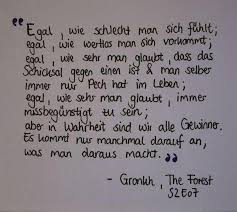 "Egal, wie schlecht man sich fühlt;
egal, wie wertlos man sich vorkommt;
egal, wie sehr man glaubt, dass das
Schicksal gegen einen ist & man selber
immer nur Pech hat im Leben;
egal, wie sehr man glaubt, immer
missbegünstigt zu sein;
aber in Wahrheit sind wir alle Gewinner.
Es kommt nur manchmal darauf an,
was man daraus macht."
- Gronkh, The Forest
S2E07